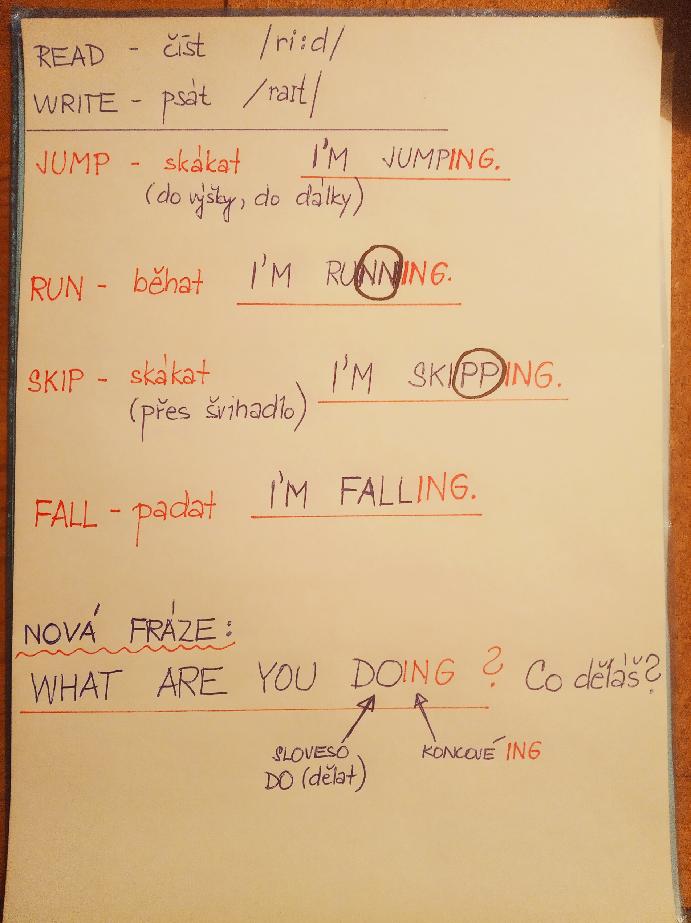 READ - číst /ri:d/
WRITE - psát /raɪt/
JUMP - skákat I'M JUMPING.
(do výšky, do dálky)
RUN - běhat I'M RUNNING.
SKIP - skákat I'M SKIPPING.
(přes švihadlo)
FALL - padat I'M FALLING.
NOVÁ FRÁZE:
WHAT ARE YOU DOING ? Co děláš?
SLOVESO KONCOVÉ ING
DO (dělat)